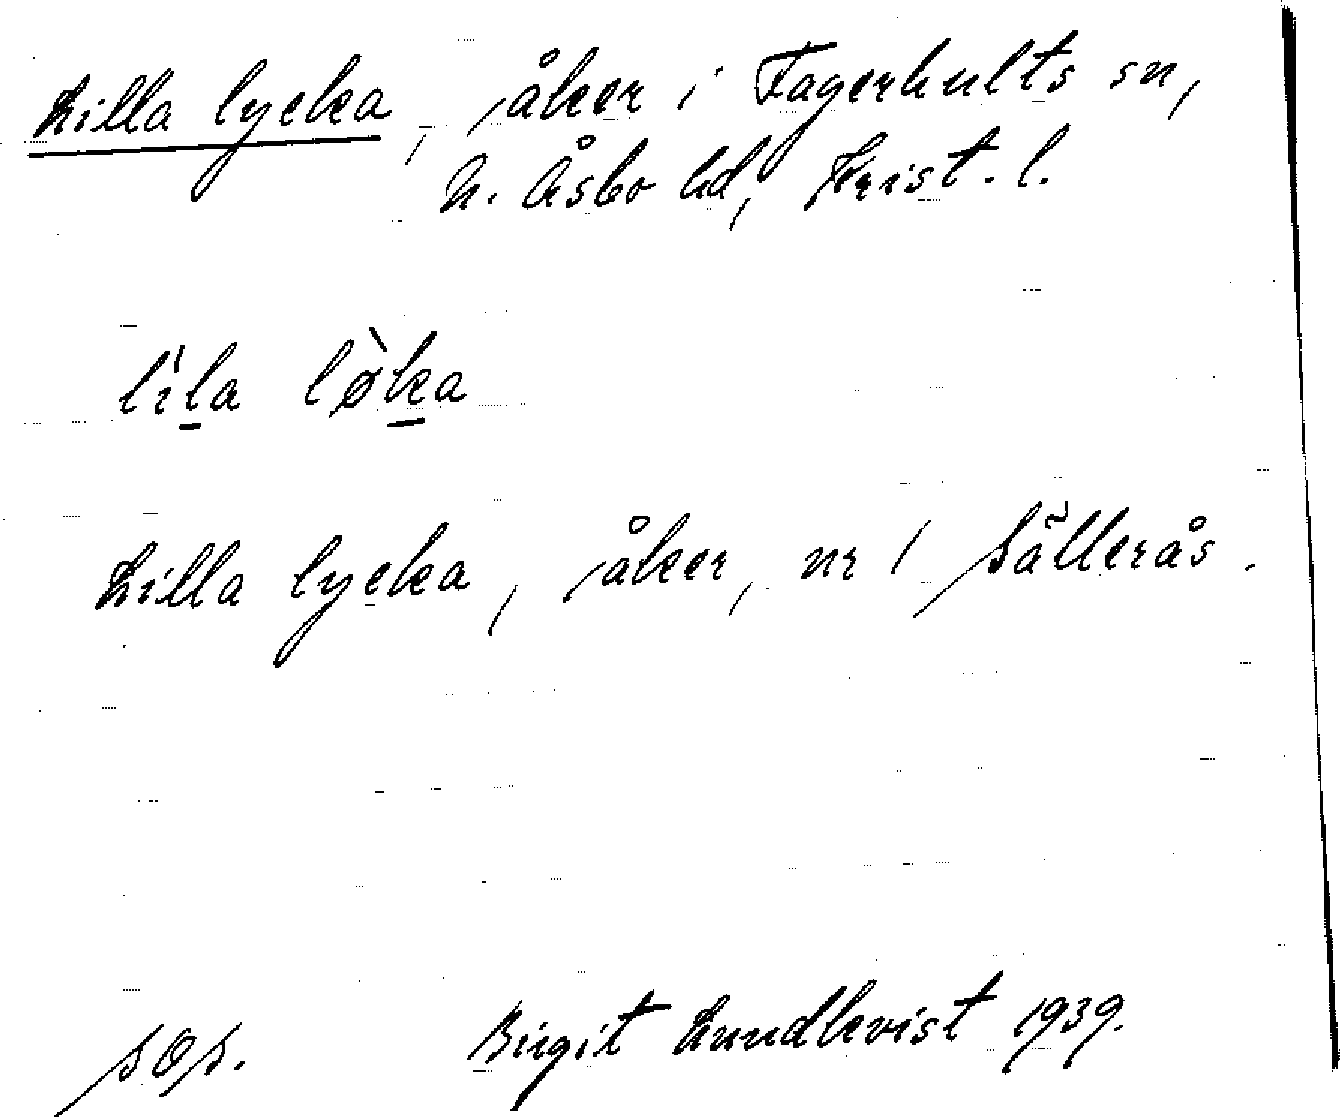 Lilla lycka, åker i Fagerhults sn,
N. Åsbo hd, Krist. l.
lila løka
Lilla lycka, åker, nr 1 Sällerås.
Birgit Lundkvist 1939.